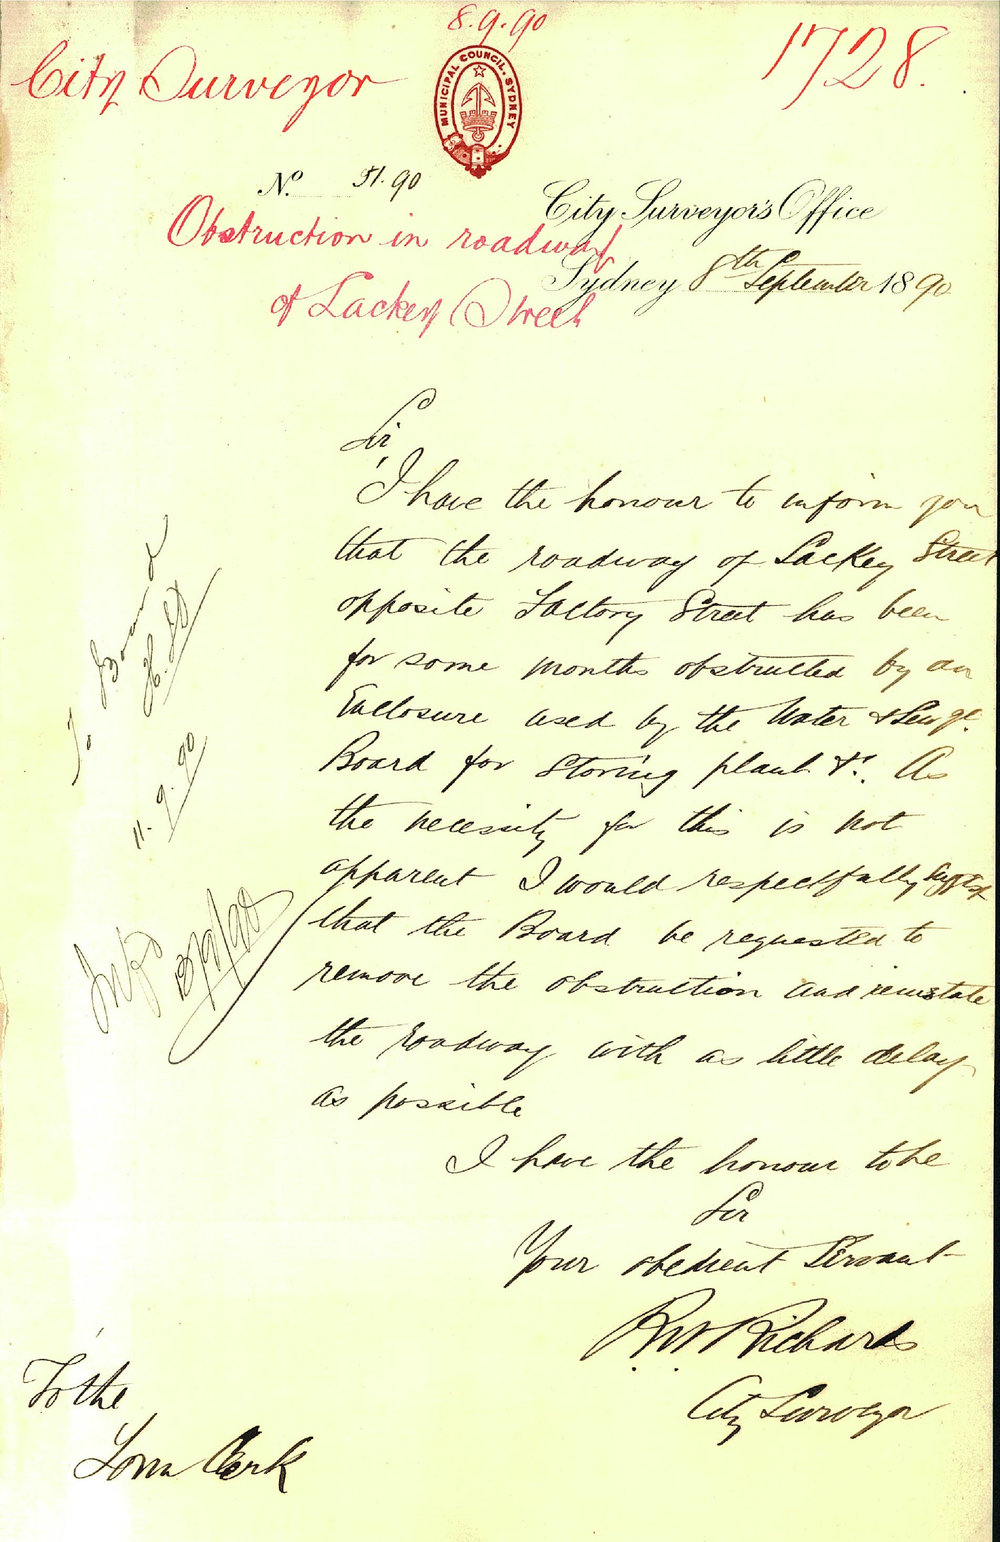 8.9.90
City Surveyor
1728.
MUNICIPAL COUNCIL. SYDNEY
No. 51.90
City Surveyor's Office
Obstruction in roadway
Sydney 8th September 1890
of Lackey Street
Sir,
I have the honour to inform you
that the roadway of Lackey Street
opposite Factory Street has been
for some months obstructed by an
Enclosure used by the Water & Sewge.
Board for storing plant &c. As
the necessity for this is not
apparent I would respectfully suggest
that the Board be requested to
remove the obstruction and reinstate
the roadway with as little delay
as possible
I have the honour to be
Sir
Your obedient Servant
R.W. Richards
City Surveyor
To the
Town Clerk
To Board
11.9.90